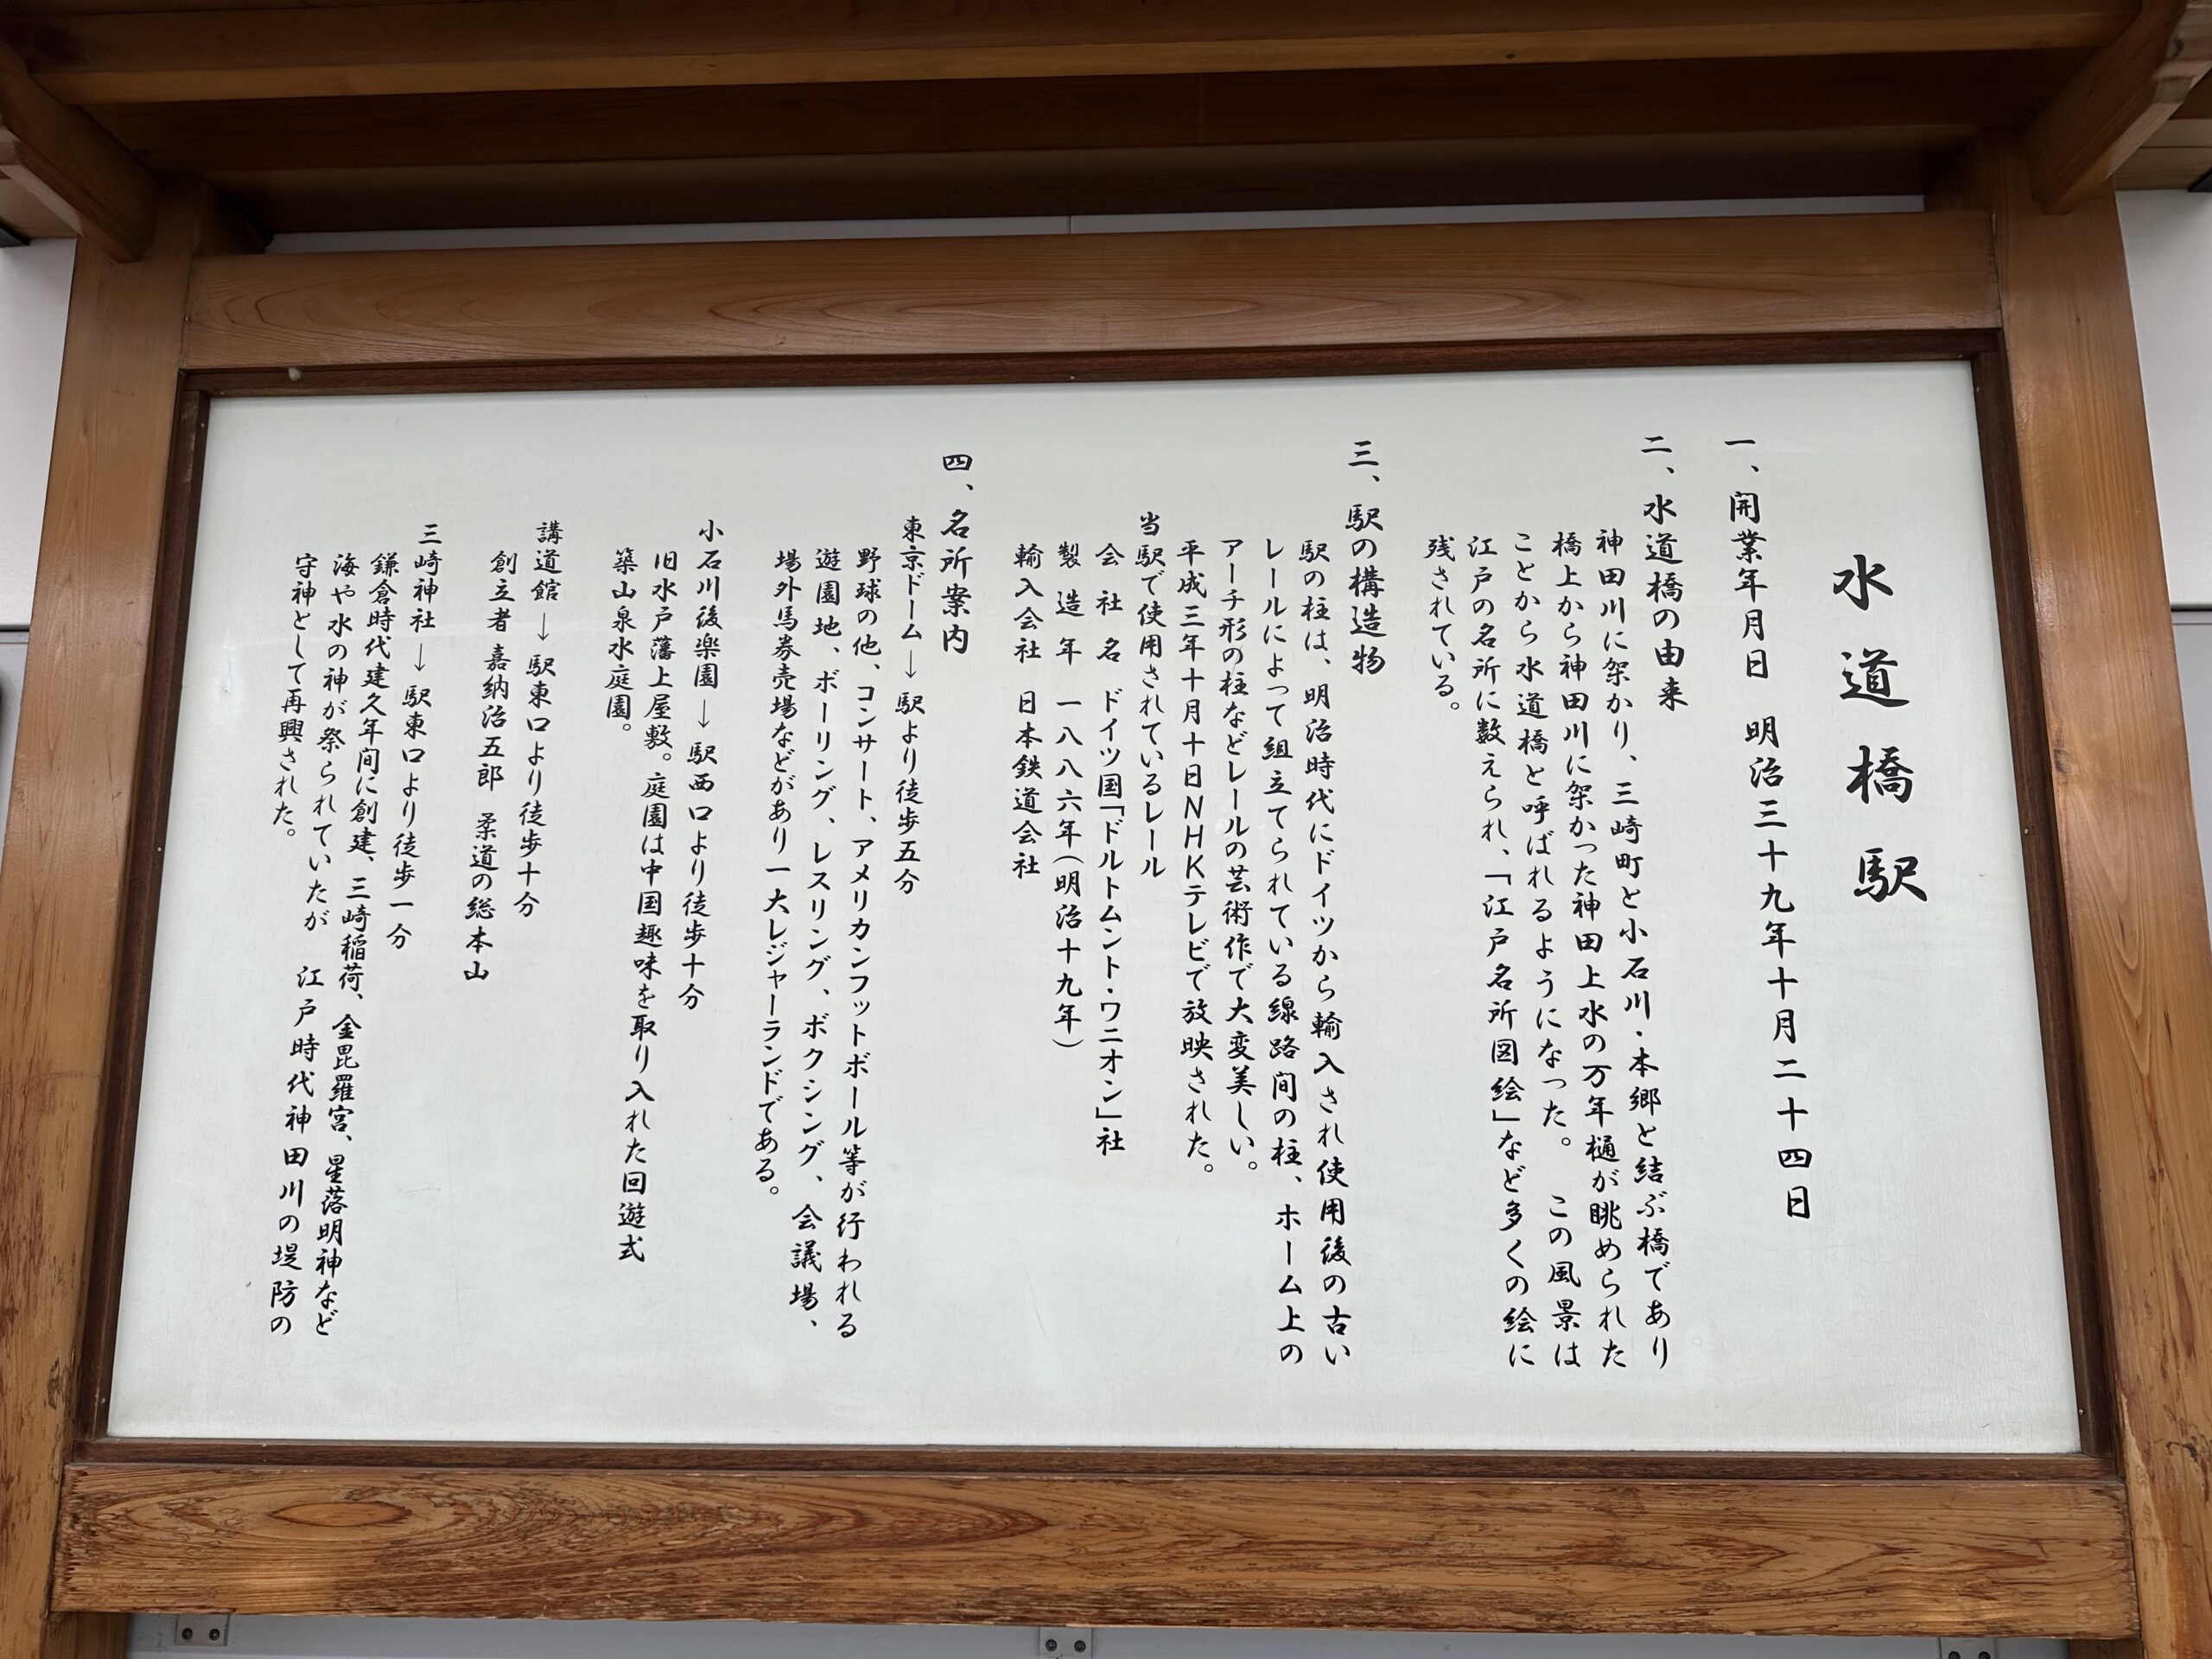 水道橋駅
一、開業年月日　明治三十九年十月二十四日
二、水道橋の由来
神田川に架かり、三崎町と小石川・本郷と結ぶ橋であり
橋上から神田川に架かった神田上水の万年樋が眺められた
ことから水道橋と呼ばれるようになった。この風景は
江戸の名所に数えられ、「江戸名所図絵」など多くの絵に
残されている。
三、駅の構造物
駅の柱は、明治時代にドイツから輸入され使用後の古い
レールによって組立てられている線路間の柱、ホーム上の
アーチ形の柱などレールの芸術作で大変美しい。
平成三年十月十日NHKテレビで放映された。
当駅で使用されているレール
会社名　ドイツ国「ドルトムント・ワニオン」社
製造年　一八八六年（明治十九年）
輸入会社　日本鉄道会社
四、名所案内
東京ドーム→駅より徒歩五分
野球の他、コンサート、アメリカンフットボール等が行われる
遊園地、ボーリング、レスリング、ボクシング、会議場、
場外馬券売場などがあり一大レジャーランドである。
小石川後楽園→駅西口より徒歩十分
旧水戸藩上屋敷。庭園は中国趣味を取り入れた回遊式
築山泉水庭園。
講道館→駅東口より徒歩十分
創立者　嘉納治五郎　柔道の総本山
三崎神社→駅東口より徒歩一分
鎌倉時代建久年間に創建、三崎稲荷、金毘羅宮、星落明神など
海や水の神が祭られていたが　江戸時代神田川の堤防の
守神として再興された。